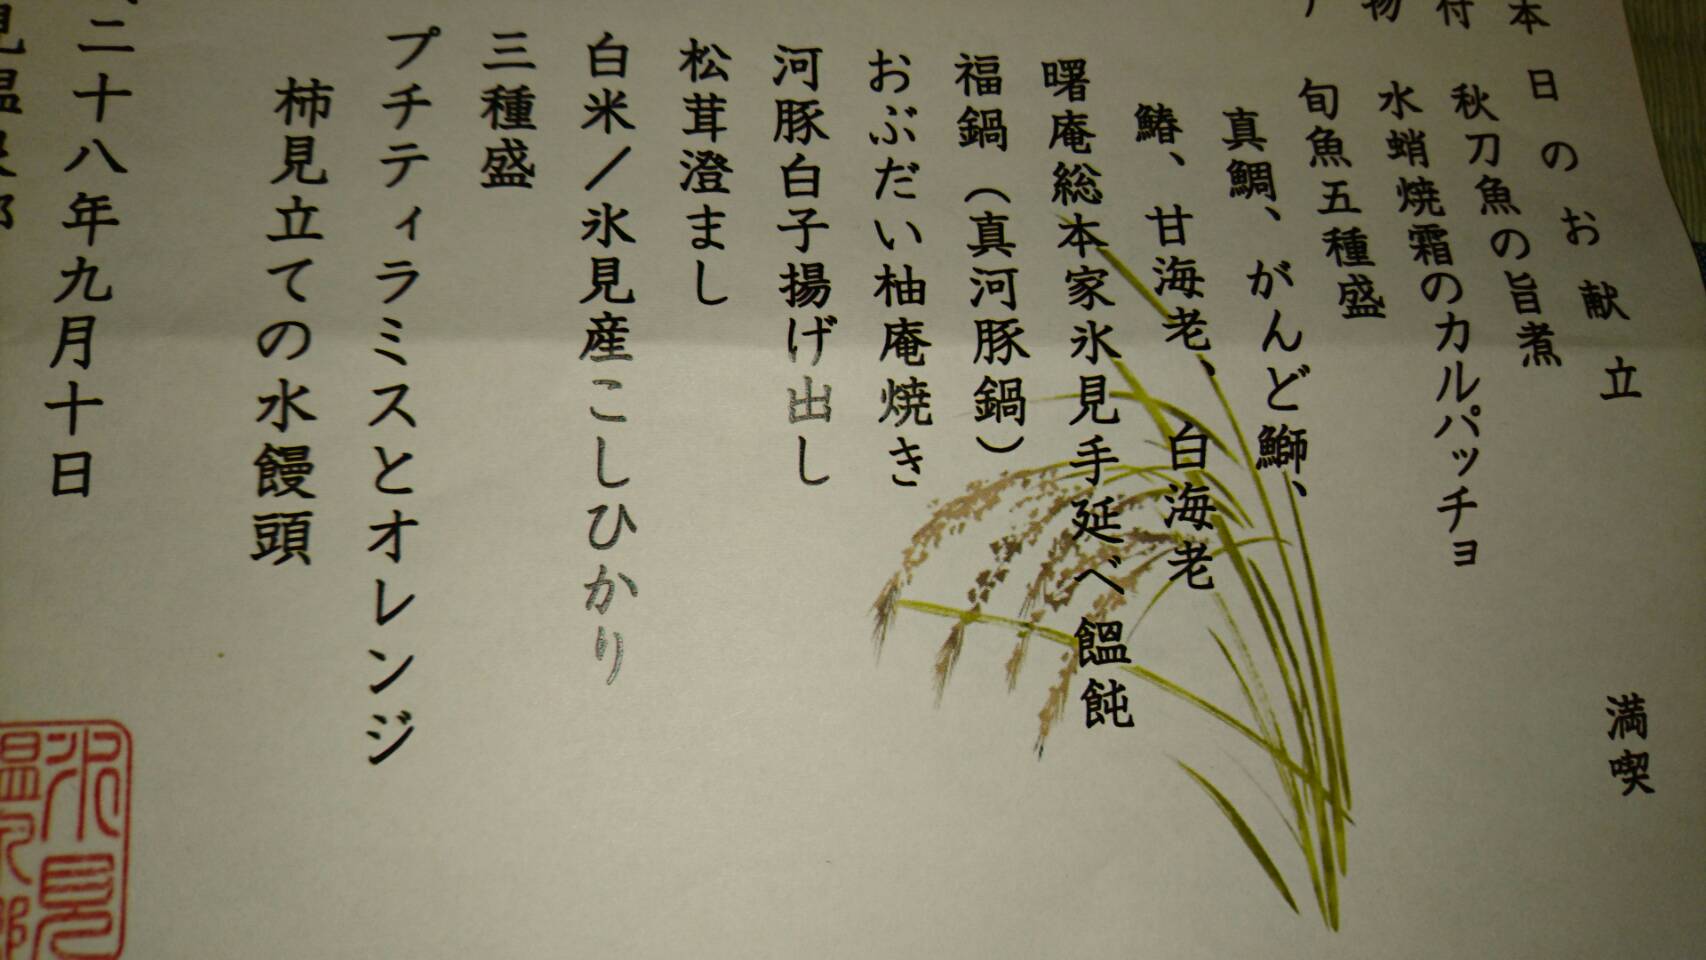 本日のお献立　満喫
付　秋刀魚の旨煮
物　水蛸焼霜のカルパッチョ
旬魚五種盛
真鯛、がんど鰤、
鰆、甘海老、白海老
曙庵総本家氷見手延べ饂飩
福鍋（真河豚鍋）
おぶだい柚庵焼き
河豚白子揚げ出し
松茸澄まし
白米／氷見産こしひかり
三種盛
プチティラミスとオレンジ
柿見立ての水饅頭
二十八年九月十日
見温泉郷
氷見